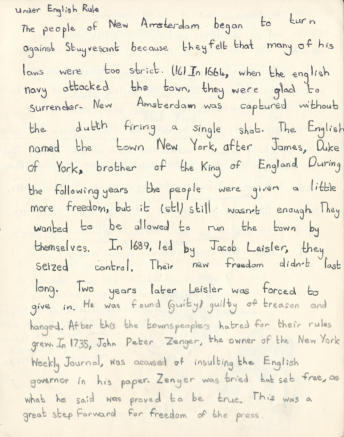 under English Rule
The people of New Amsterdam began to turn
against Stuyvesant because they felt that many of his
laws were too strict. (16) In 1664, when the english
navy attacked the town, they were glad to
surrender. New Amsterdam was captured without
the dutch firing a single shot. The English
named the town New York, after James, Duke
of York, brother of the King of England During
the following years the people were given a little
more freedom, but it (stl) still wasn't enough They
wanted to be allowed to run the town by
themselves. In 1689, led by Jacob Leisler, they
seized control. Their new freedom didn't last
long. Two years later Leisler was forced to
give in. He was found (guity) guilty of treason and
hanged. After this the townspeoples hatred for their rulers
grew. In 1735, John Peter Zenger, the owner of the New York
Weekly Journal, was accused of insulting the English
governor in his paper. Zenger was tried but set free, as
what he said was proved to be true. This was a
great step forward for freedom of the press.